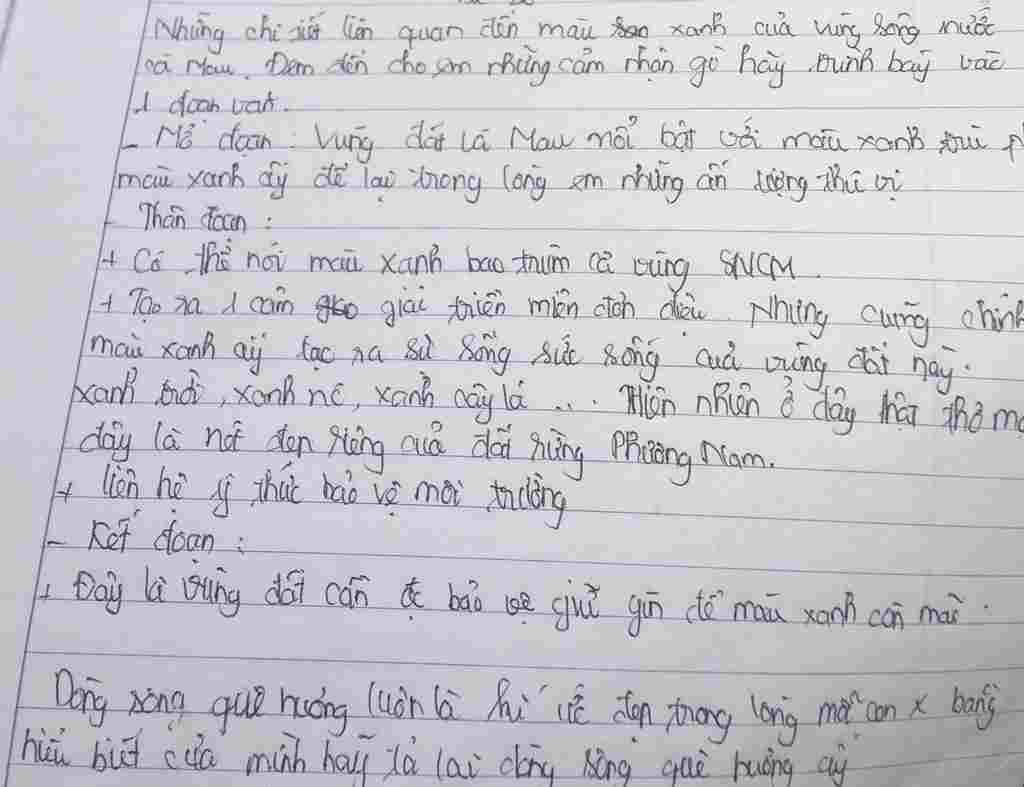 Những chi tiết liên quan đến màu xanh của vùng sông nước
cà Mau. Đem đến cho em những cảm nhận gì hãy trình bày vào
1 đoạn văn.
- Mở đoạn: Vùng đất Cà Mau nổi bật với màu xanh trù p
màu xanh ấy để lại trong lòng em những ấn tượng thú vị
- Thân đoạn:
+ Có thể nói màu xanh bao trùm cả vùng SNCM.
+ Tạo ra 1 cảm giác triền miên đơn điệu. Nhưng cũng chính
màu xanh ấy tạc ra sự sống sức sống của vùng đất này.
xanh trời, xanh nc, xanh cây lá ... thiên nhiên ở đây thật thơ mộ
đây là nét đẹp riêng của đất rừng Phương Nam.
+ liên hệ ý thức bảo vệ môi trường
- Kết đoạn:
+ Đây là vùng đất cần đc bảo vệ giữ gìn để màu xanh còn mãi.
Dòng sông quê hương luôn là kí ức đẹp trong lòng mỗi con x bằng
hiểu biết của mình hãy tả lại dòng sông quê hương ấy